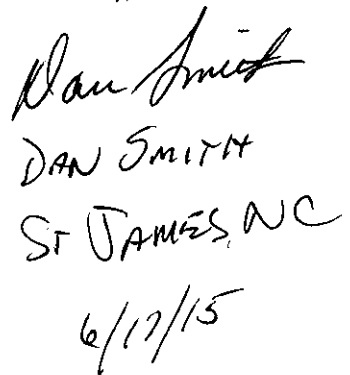 Dan Smith
DAN SMITH
ST JAMES, NC
6/17/15